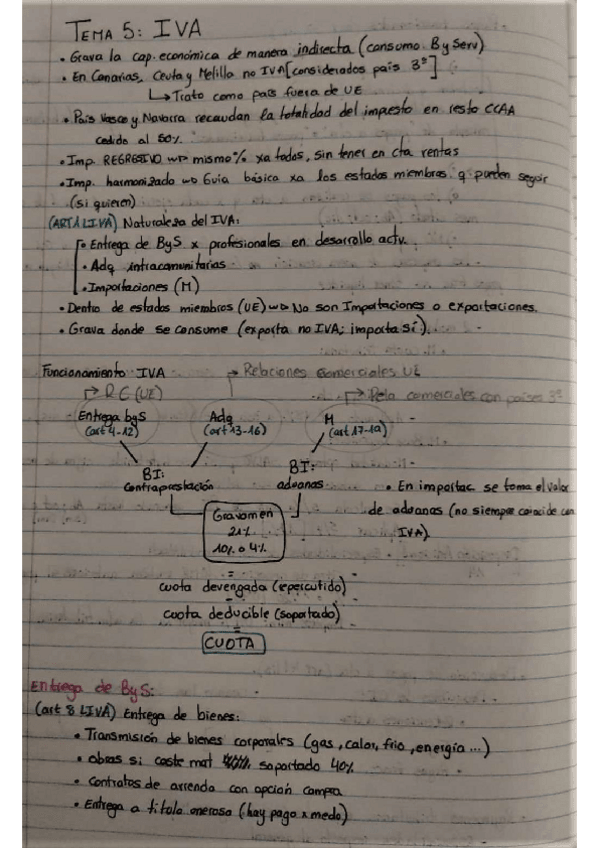 TEMA 5: IVA
• Grava la cap. económica de manera indirecta (consumo ByServ)
• En Canarias, Ceuta y Melilla no IVA [considerados país 3º]
↳ Trato como país fuera de UE
• País Vasco y Navarra recaudan la totalidad del impuesto en resto CCAA
cedido al 50%
• Imp. REGRESIVO → mismo % xa todos, sin tener en cta rentas
• Imp. harmonizado → Guia básica xa los estados miembros q pueden seguir
(si quieren)
(ART 1 LIVA) Naturaleza del IVA:
• Entrega de ByS x profesionales en desarrollo activ.
• Adq intracomunitarias
• Importaciones (M)
• Dentro de estados miembros (UE) → No son Importaciones o exportaciones.
• Grava donde se consume (exporta no IVA; importa sí).
Funcionamiento IVA → Relaciones Comerciales UE
→ RC (UE) → Rela comerciales con países 3º
- Entrega byS Adq M
(art 4-12) (art 13-16) (art 17-19)
BI: BI:
Contraprestación aduanas • En importac. se toma el valor
de aduanas (no siempre coincide con
IVA).
Gravamen
21%
10% o 4%
=
cuota devengada (repercutido)
-
cuota deducible (soportado)
=
CUOTA
Entrega de ByS:
(art 8 LIVA) Entrega de bienes:
• Transmisión de bienes corporales (gas, calor, frio, energía ...)
• obras si coste mat soportado 40%
• Contratos de arrendo con opción compra
• Entrega a título onerosa (hay pago x medo)